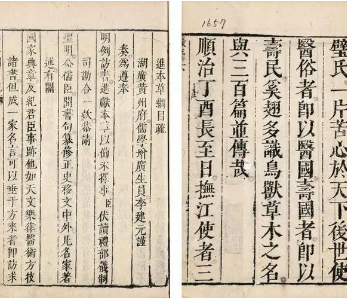 1657
璧氏一片苦心於天下後世使
醫俗者即以醫國壽國者即以
壽民奚翅多識鳥獸草木之名
與三百篇並傳哉
順治丁酉長至日撫江使者三
進本草綱目疏
湖廣黃州府儒學增廣生員李建元謹
奏爲遵奉
明例訪書進獻本草以備采擇事臣伏讀禮部儀制
司勘合一款恭請
聖明勅儒臣開書局纂修正史移文中外凡名家著
述有關
國家典章及紀君臣事跡他如天文樂律醫術方技
諸書但成一家名言可以垂于方來者即訪求